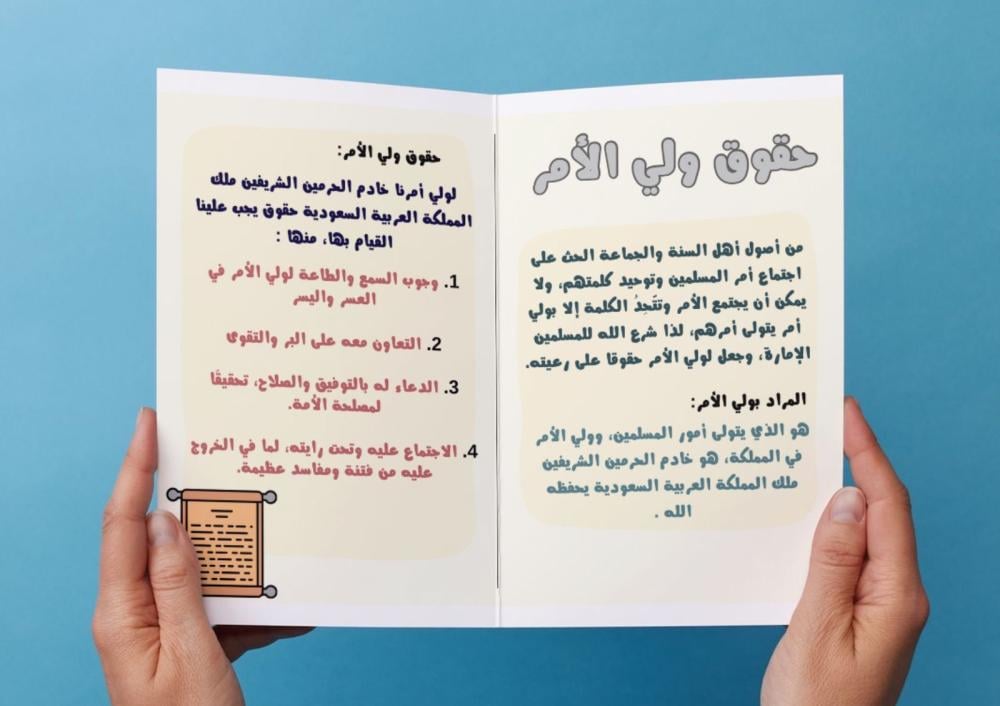 حقوق ولي الأمر
من أصول أهل السنة والجماعة الحث على
اجتماع أمر المسلمين وتوحيد كلمتهم، ولا
يمكن أن يجتمع الأمر وتتَحِدُ الكلمة إلا بولي
أمر يتولى أمرهم، لذا شرع الله للمسلمين
الإمارة، وجعل لولي الأمر حقوقا على رعيته.
المراد بولي الأمر:
هو الذي يتولى أمور المسلمين، وولي الأمر
في المملكة، هو خادم الحرمين الشريفين
ملك المملكة العربية السعودية يحفظه
الله .
حقوق ولي الأمر:
لولي أمرنا خادم الحرمين الشريفين ملك
المملكة العربية السعودية حقوق يجب علينا
القيام بها، منها :
1. وجوب السمع والطاعة لولي الأمر في
العسر واليسر
2. التعاون معه على البر والتقوى
3. الدعاء له بالتوفيق والصلاح، تحقيقًا
لمصلحة الأمة.
4. الاجتماع عليه وتحت رايته، لما في الخروج
عليه من فتنة ومفاسد عظيمة.